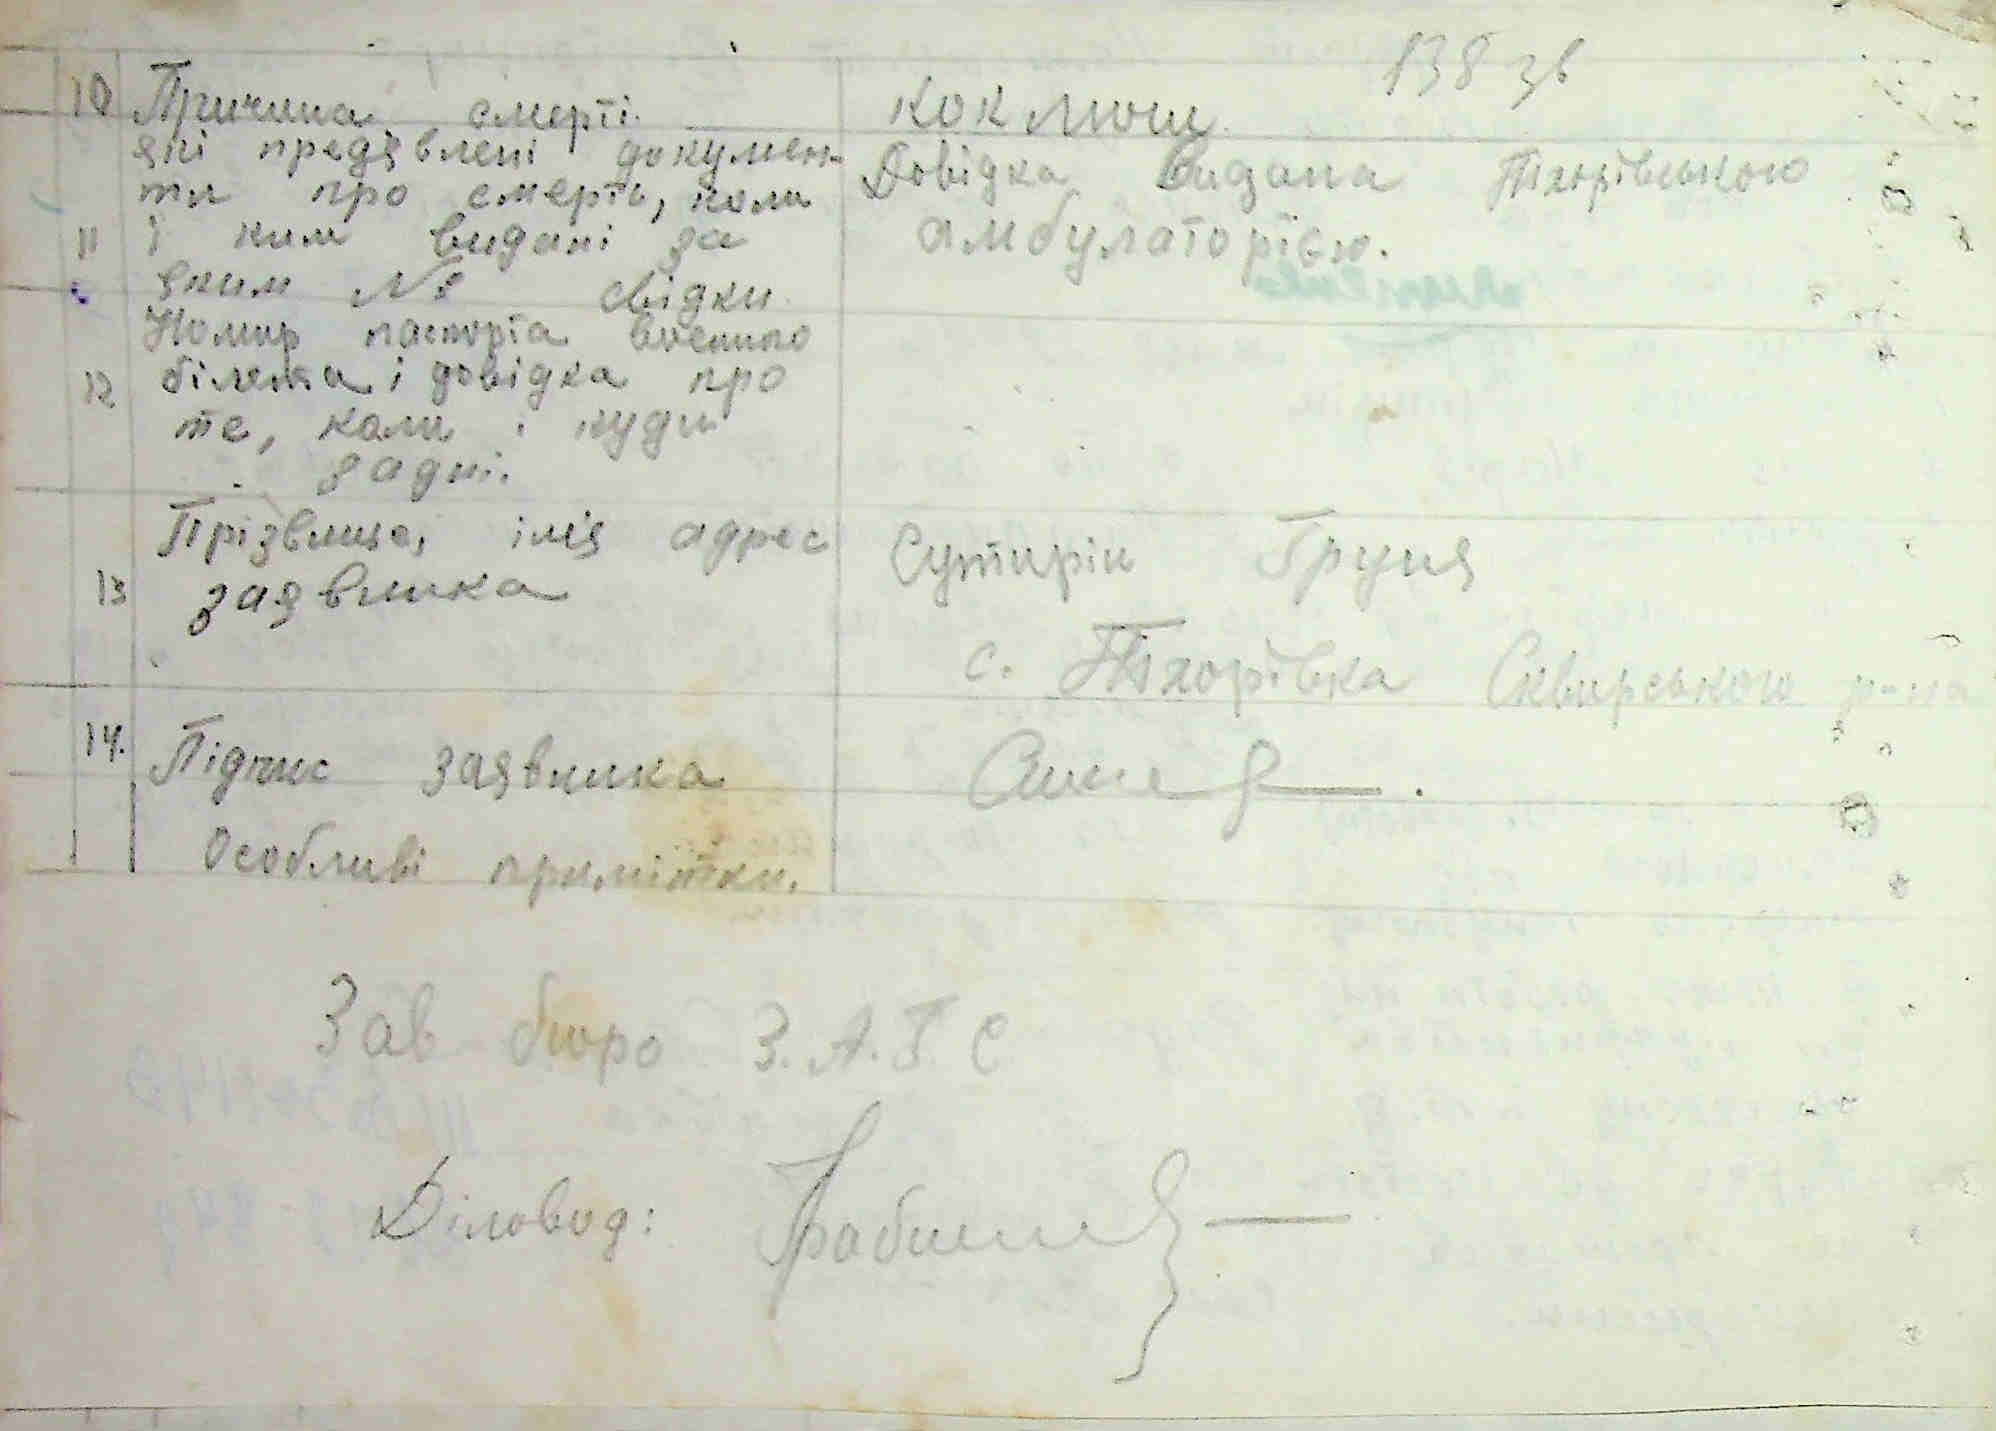 138 зв
10 Причина смерті. коклюш
які предявлені докумен-
ти про смерть, коли
Довідка видана Тхорівською
11 і ким видані за
амбулаторією.
яким № свідки
Номир паспорта военного
12 білета і довідка про
те, коли і куди
здані.
Прізвище, імія адрес
13 заявника
Сутирін Груня
с. Тхорівка Сквирського р-на
14. Підпис заявника
Особливі примітки.
Зав бюро З.А.Г С
Діловод: